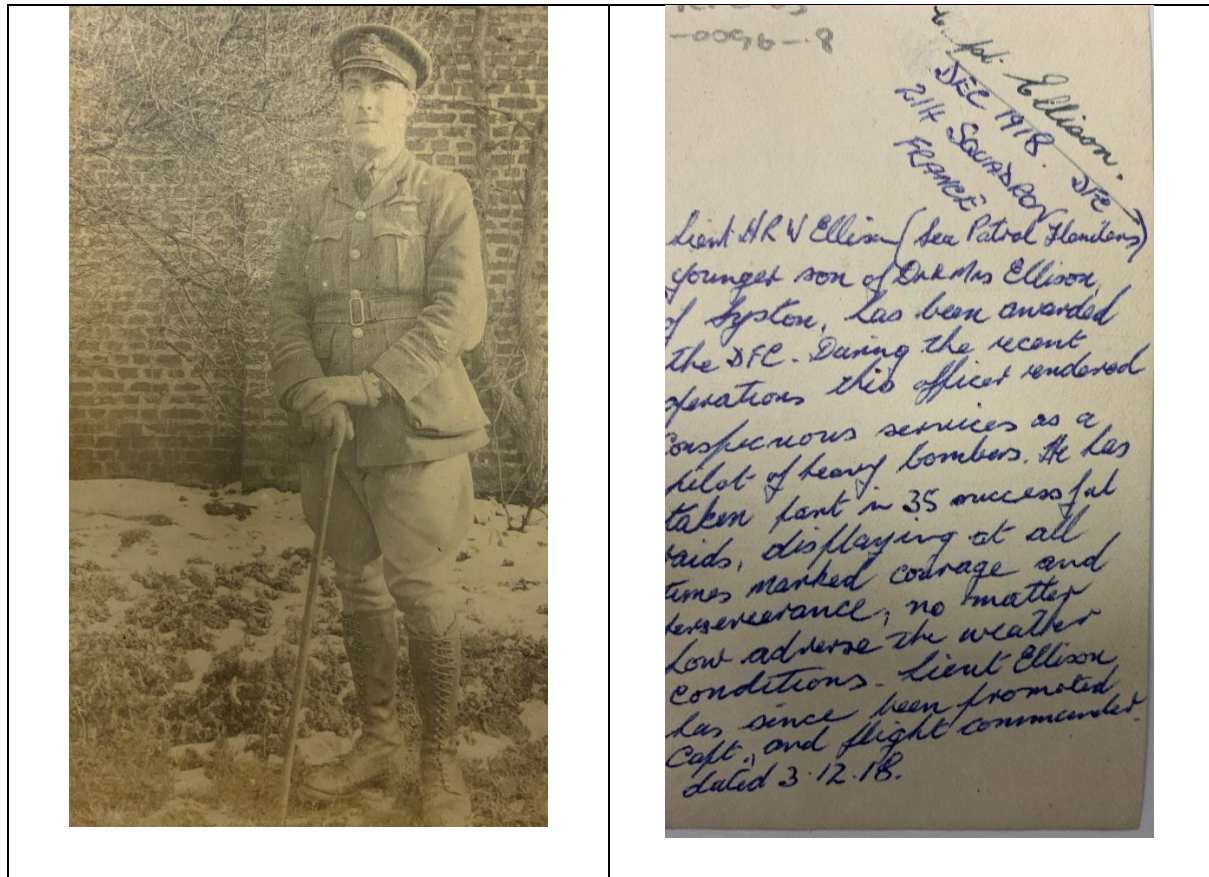 -0096-8
Capt. Ellison.
DEC 1918. DFC
214 SQUADRON
FRANCE
Lieut HRW Ellison (Sea Patrol Flanders)
younger son of Dr & Mrs Ellison,
of Syston, has been awarded
the DFC. During the recent
operations this officer rendered
conspicuous services as a
pilot of heavy bombers. He has
taken part in 35 successful
raids, displaying at all
times marked courage and
perseverance, no matter
how adverse the weather
conditions. Lieut Ellison
has since been promoted
Capt., and flight commander.
dated 3.12.18.